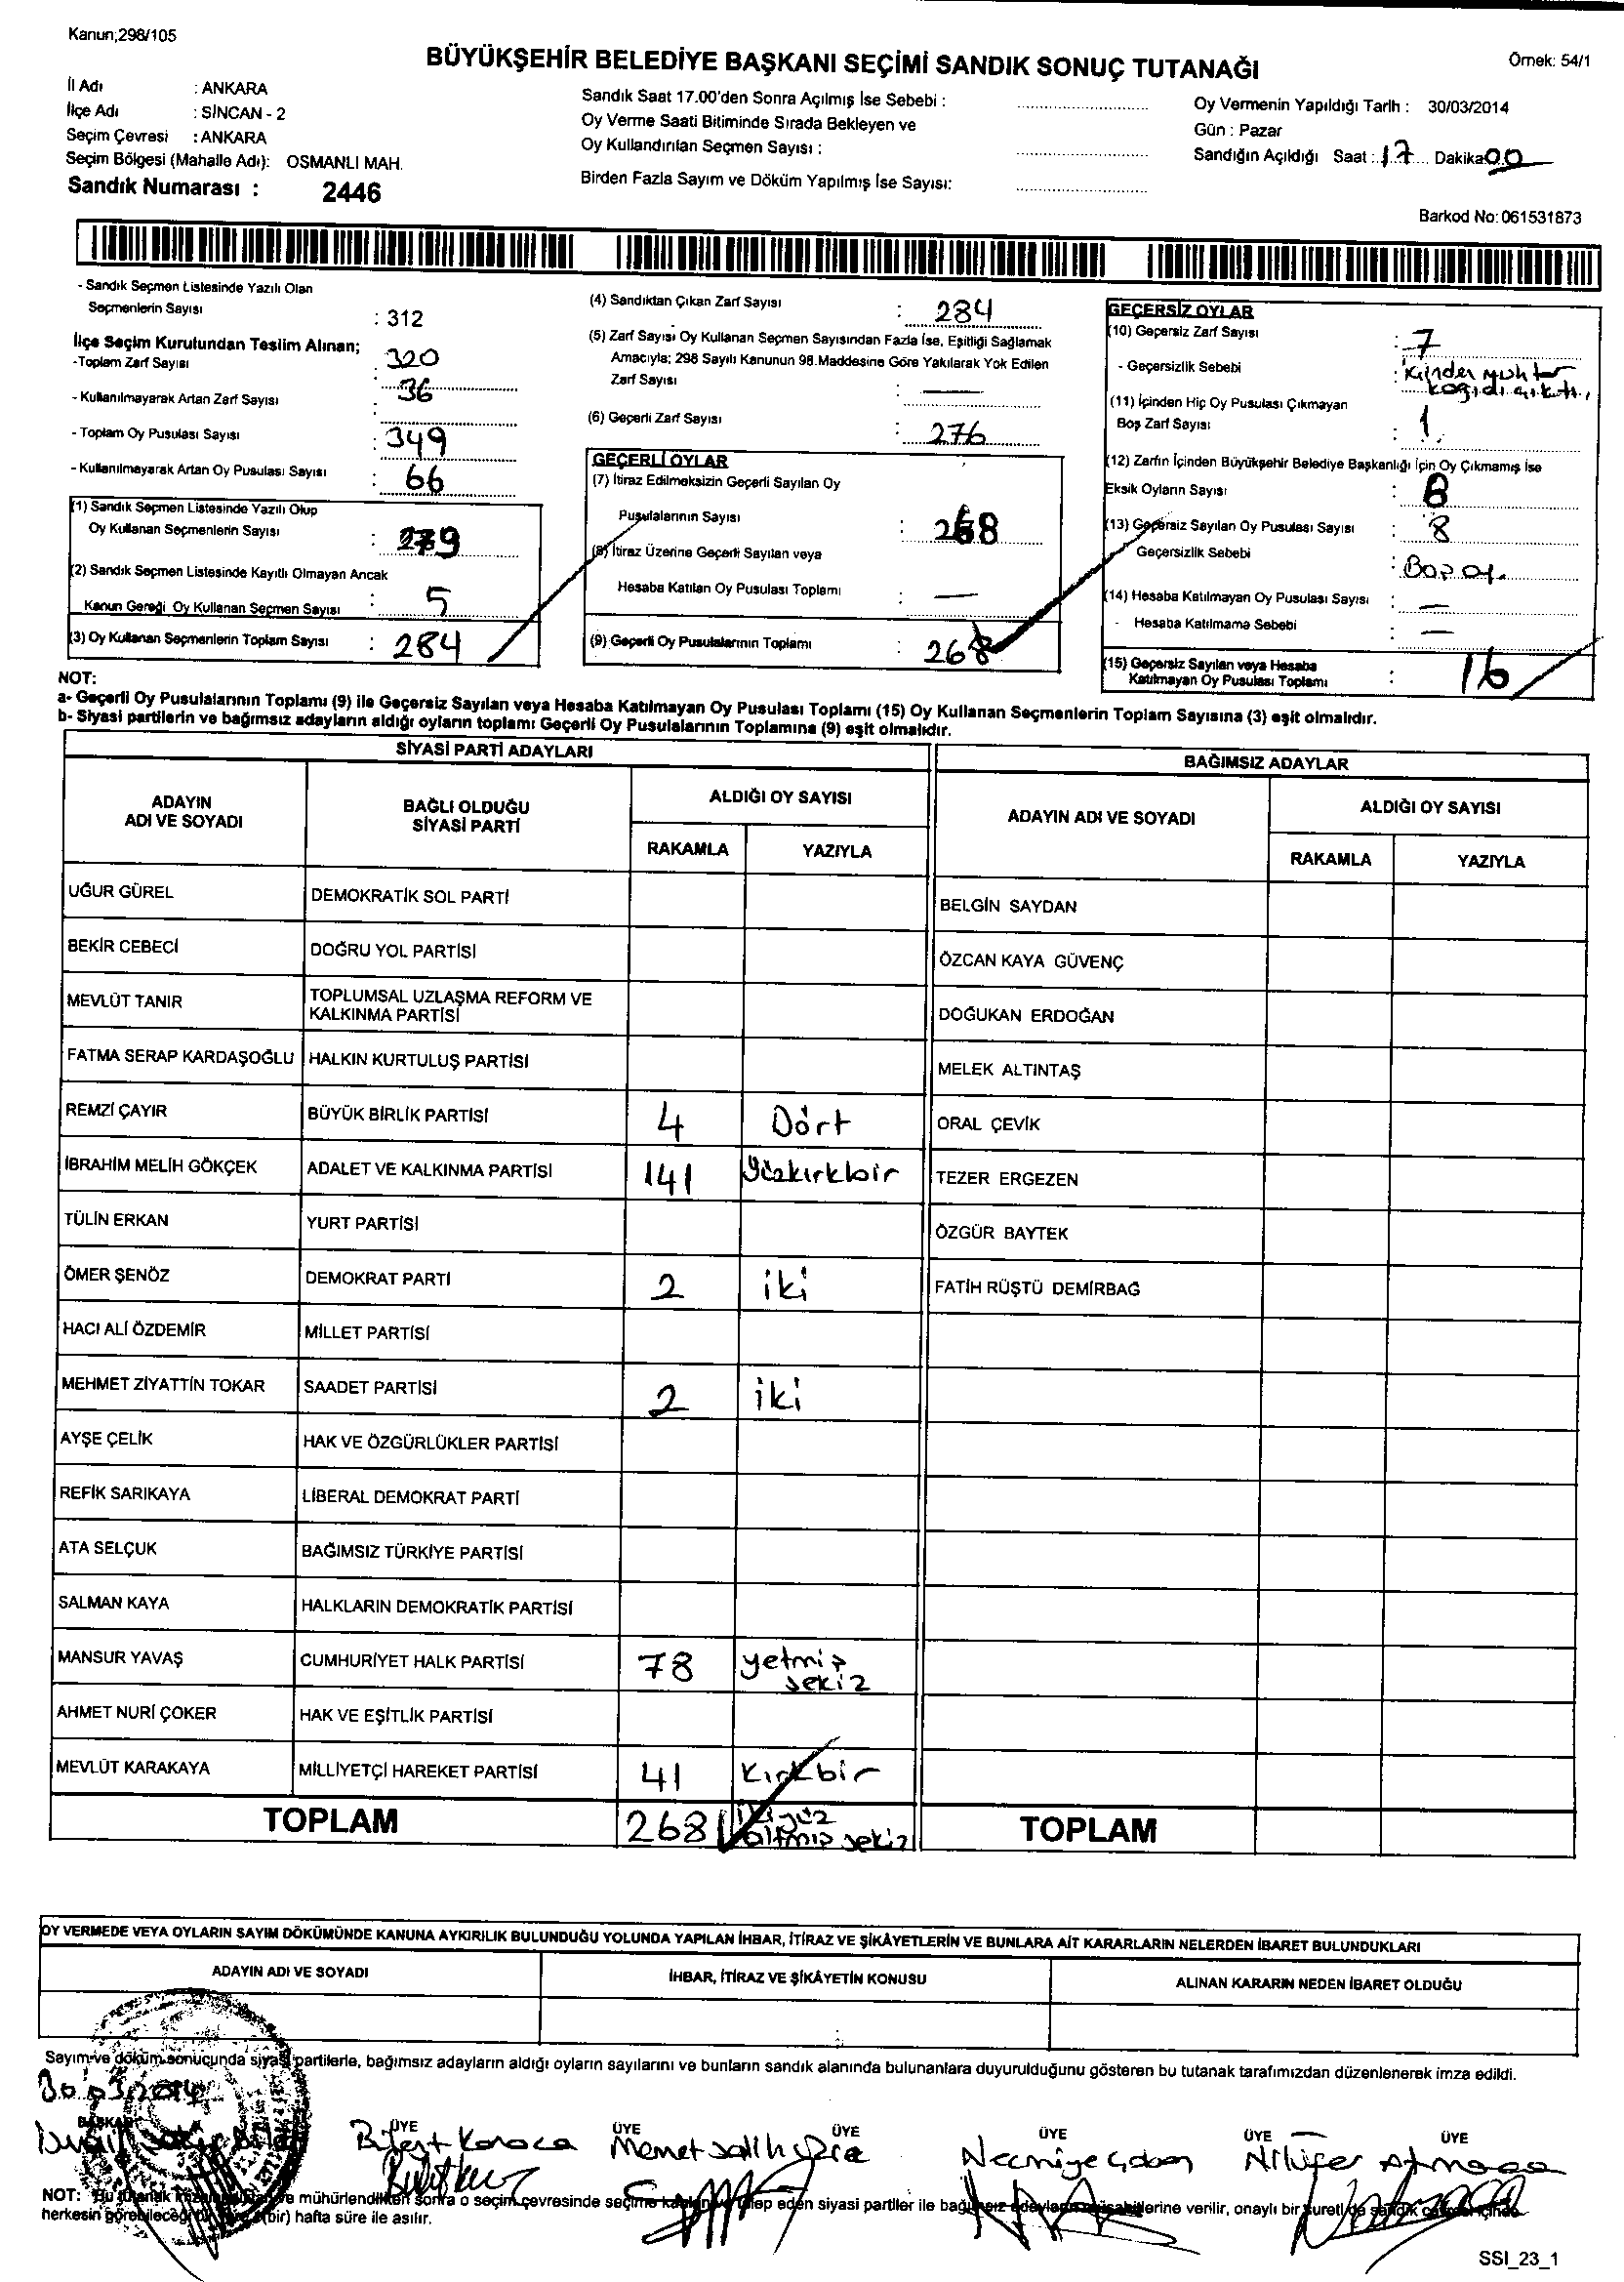 Kanun;298/105
BÜYÜKŞEHİR BELEDİYE BAŞKANI SEÇİMİ SANDIK SONUÇ TUTANAĞI
Örnek: 54/1
İl Adı : ANKARA
İlçe Adı : SİNCAN - 2
Seçim Çevresi : ANKARA
Seçim Bölgesi (Mahalle Adı): OSMANLI MAH.
Sandık Numarası : 2446
Sandık Saat 17.00'den Sonra Açılmış İse Sebebi :
Oy Verme Saati Bitiminde Sırada Bekleyen ve
Oy Kullandırılan Seçmen Sayısı :
Birden Fazla Sayım ve Döküm Yapılmış İse Sayısı:
Oy Vermenin Yapıldığı Tarih : 30/03/2014
Gün : Pazar
Sandığın Açıldığı Saat : 17 Dakika 00
Barkod No: 061531873
- Sandık Seçmen Listesinde Yazılı Olan
Seçmenlerin Sayısı : 312
İlçe Seçim Kurulundan Teslim Alınan;
-Toplam Zarf Sayısı : 320
- Kullanılmayarak Artan Zarf Sayısı : 36
- Toplam Oy Pusulası Sayısı : 349
- Kullanılmayarak Artan Oy Pusulası Sayısı : 66
(1) Sandık Seçmen Listesinde Yazılı Olup
Oy Kullanan Seçmenlerin Sayısı : 279
(2) Sandık Seçmen Listesinde Kayıtlı Olmayan Ancak
Kanun Gereği Oy Kullanan Seçmen Sayısı : 5
(3) Oy Kullanan Seçmenlerin Toplam Sayısı : 284
(4) Sandıktan Çıkan Zarf Sayısı : 284
(5) Zarf Sayısı Oy Kullanan Seçmen Sayısından Fazla İse, Eşitliği Sağlamak
Amacıyla; 298 Sayılı Kanunun 98.Maddesine Göre Yakılarak Yok Edilen
Zarf Sayısı : —
(6) Geçerli Zarf Sayısı : 276
GEÇERLİ OYLAR
(7) İtiraz Edilmeksizin Geçerli Sayılan Oy
Pusulalarının Sayısı : 268
(8) İtiraz Üzerine Geçerli Sayılan veya
Hesaba Katılan Oy Pusulası Toplamı : —
(9) Geçerli Oy Pusulalarının Toplamı : 268
GEÇERSİZ OYLAR
(10) Geçersiz Zarf Sayısı : 7
- Geçersizlik Sebebi :
kağıdı çıktı.
(11) İçinden Hiç Oy Pusulası Çıkmayan
Boş Zarf Sayısı : 1.
(12) Zarfın İçinden Büyükşehir Belediye Başkanlığı İçin Oy Çıkmamış İse
Eksik Oyların Sayısı : 8
(13) Geçersiz Sayılan Oy Pusulası Sayısı : 8
Geçersizlik Sebebi : Boş oy.
(14) Hesaba Katılmayan Oy Pusulası Sayısı : —
- Hesaba Katılmama Sebebi : —
(15) Geçersiz Sayılan veya Hesaba
Katılmayan Oy Pusulası Toplamı : 16
NOT:
a- Geçerli Oy Pusulalarının Toplamı (9) ile Geçersiz Sayılan veya Hesaba Katılmayan Oy Pusulası Toplamı (15) Oy Kullanan Seçmenlerin Toplam Sayısına (3) eşit olmalıdır.
b- Siyasi partilerin ve bağımsız adayların aldığı oyların toplamı Geçerli Oy Pusulalarının Toplamına (9) eşit olmalıdır.
SİYASİ PARTİ ADAYLARI
ADAYIN ADI VE SOYADI BAĞLI OLDUĞU SİYASİ PARTİ ALDIĞI OY SAYISI
RAKAMLA YAZIYLA
UĞUR GÜREL DEMOKRATİK SOL PARTİ
BEKİR CEBECİ DOĞRU YOL PARTİSİ
MEVLÜT TANIR TOPLUMSAL UZLAŞMA REFORM VE KALKINMA PARTİSİ
FATMA SERAP KARDAŞOĞLU HALKIN KURTULUŞ PARTİSİ
REMZİ ÇAYIR BÜYÜK BİRLİK PARTİSİ 4 Dört
İBRAHİM MELİH GÖKÇEK ADALET VE KALKINMA PARTİSİ 141 Yüzkırkbir
TÜLİN ERKAN YURT PARTİSİ
ÖMER ŞENÖZ DEMOKRAT PARTİ 2 iki
HACI ALİ ÖZDEMİR MİLLET PARTİSİ
MEHMET ZİYATTİN TOKAR SAADET PARTİSİ 2 iki
AYŞE ÇELİK HAK VE ÖZGÜRLÜKLER PARTİSİ
REFİK SARIKAYA LİBERAL DEMOKRAT PARTİ
ATA SELÇUK BAĞIMSIZ TÜRKİYE PARTİSİ
SALMAN KAYA HALKLARIN DEMOKRATİK PARTİSİ
MANSUR YAVAŞ CUMHURİYET HALK PARTİSİ 78 yetmiş sekiz
AHMET NURİ ÇOKER HAK VE EŞİTLİK PARTİSİ
MEVLÜT KARAKAYA MİLLİYETÇİ HAREKET PARTİSİ 41 Kırkbir
TOPLAM 268 iki yüz altmış sekiz
BAĞIMSIZ ADAYLAR
ADAYIN ADI VE SOYADI ALDIĞI OY SAYISI
RAKAMLA YAZIYLA
BELGİN SAYDAN
ÖZCAN KAYA GÜVENÇ
DOĞUKAN ERDOĞAN
MELEK ALTINTAŞ
ORAL ÇEVİK
TEZER ERGEZEN
ÖZGÜR BAYTEK
FATİH RÜŞTÜ DEMİRBAĞ
TOPLAM
OY VERMEDE VEYA OYLARIN SAYIM DÖKÜMÜNDE KANUNA AYKIRILIK BULUNDUĞU YOLUNDA YAPILAN İHBAR, İTİRAZ VE ŞİKÂYETLERİN VE BUNLARA AİT KARARLARIN NELERDEN İBARET BULUNDUKLARI
ADAYIN ADI VE SOYADI İHBAR, İTİRAZ VE ŞİKÂYETİN KONUSU ALINAN KARARIN NEDEN İBARET OLDUĞU
Sayım ve döküm sonucunda siyasi partilerle, bağımsız adayların aldığı oyların sayılarını ve bunların sandık alanında bulunanlara duyurulduğunu gösteren bu tutanak tarafımızdan düzenlenerek imza edildi.
30.03.2014
BAŞKAN ÜYE ÜYE ÜYE ÜYE ÜYE ÜYE
Bülent Karaca Necmiye Çoban Nilüfer Atmaca
NOT: Bu tutanak mühürlendikten sonra o seçim çevresinde seçime talep eden siyasi partiler ile bağımsız verilir, onaylı bir
herkesin görebileceği (bir) hafta süre ile asılır.
SSI_23_1